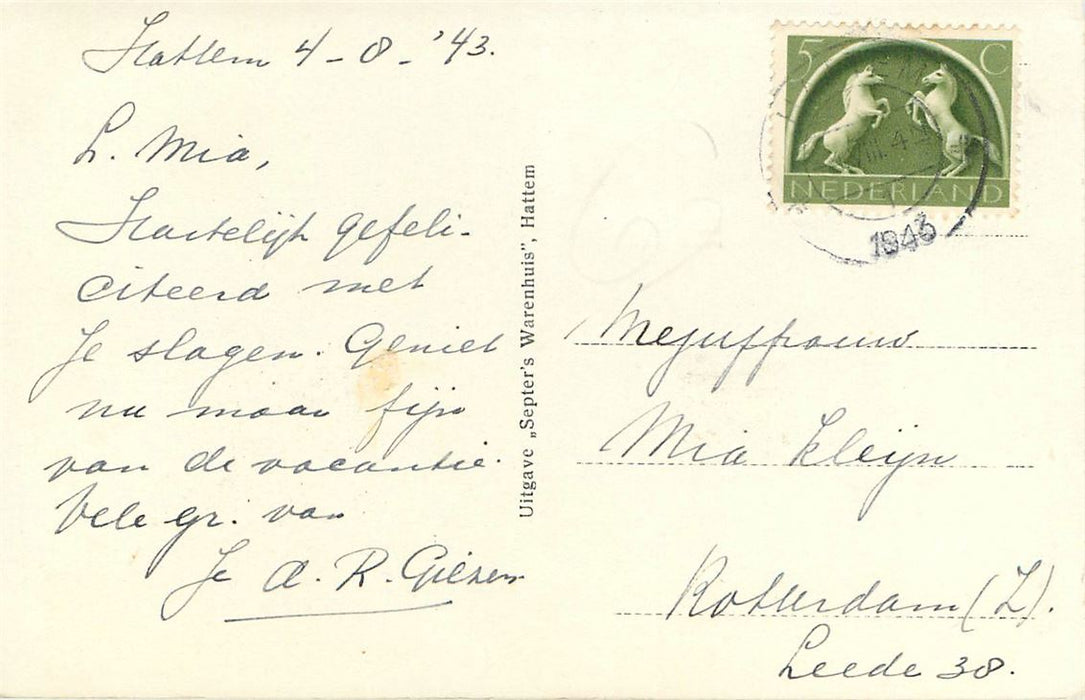 Hattem 4-8-'43.
L. Mia,
Hartelijk gefeli-
citeerd met
Je slagen. Geniet
nu maar fijn
van de vacantie.
Vele gr. van
Je A. R. Giezen
Uitgave „Septer's Warenhuis”, Hattem
5 C
NEDERLAND
VIII.4
1943
Mejuffrouw
Mia Kleijn
Rotterdam (Z).
Leede 38.